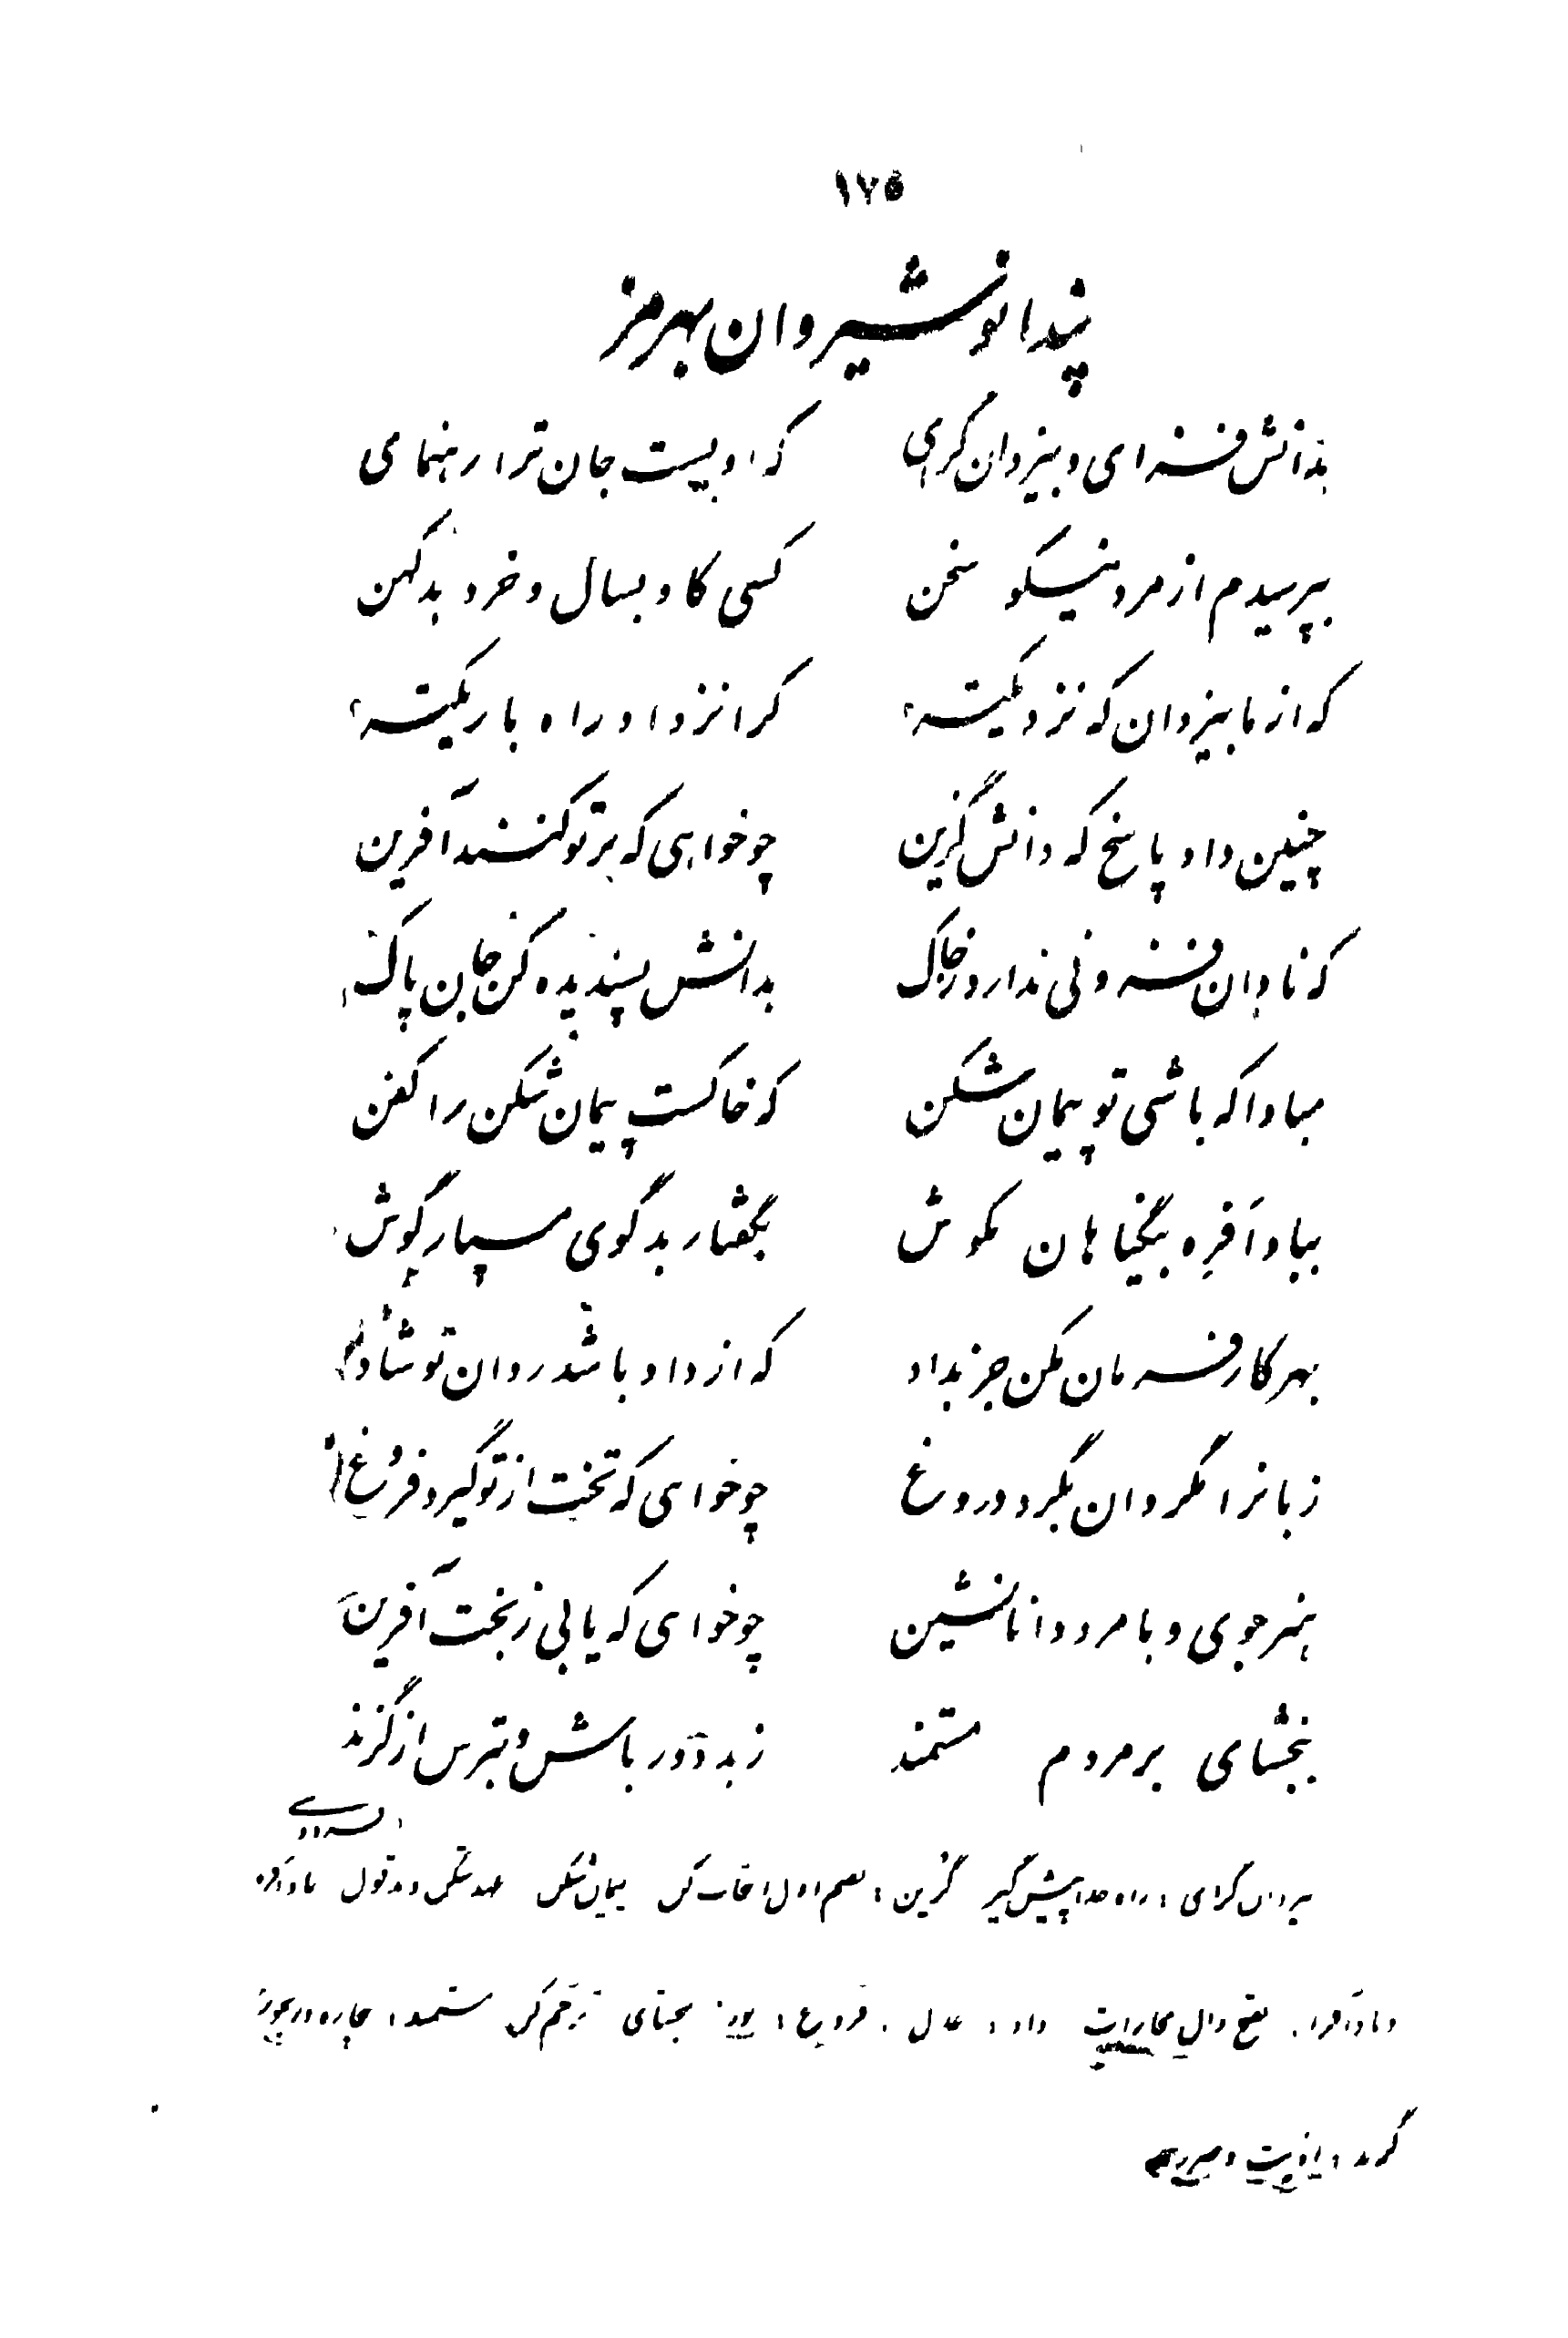 ١٢٥
پند انوشیروان بهرمز
بدانش فزای و بیزدان گرای که اویست جان ترا رهنمای
بپرسیدم از مرد نیکو سخن کسی کاو بسال و خرد بد کهن
که از ما بیزدان که نزدیکتر؟ کرا نزد او راه باریکتر؟
چنین داد پاسخ که دانش گزین چو خواهی که بر تو کنند آفرین
که نادان فزونی ندارد ز خاک بدانش پسندیده کن جان پاک
مبادا که باشی تو پیمان شکن که خاکست پیمان شکن را کفن
بباد آفره بیگناهان مکوش بگفتار بدگوی مسپار گوش
بهر کار فرمان مکن جز بداد که از داد باشد روان تو شاد
زبانرا مگردان بگرد دروغ چو خواهی که تخت از تو گیرد فروغ
هنر جوی و با مرد دانا نشین چو خواهی که یابی ز بخت آفرین
ببخشای بر مردم مستمند ز بد دور باش و بترس از گزند
فردوسی
یزدان گرای : راه خدا پیش گیر گزین : بضم اول انتخاب کن پیمان شکن عهد شکن و بد قول باد آفره
و باد افراه بفتح دال مجازات داد : عدل . فروغ : نور ببخشای ترحم کن مستمند :
گزند : اذیت و ضرر